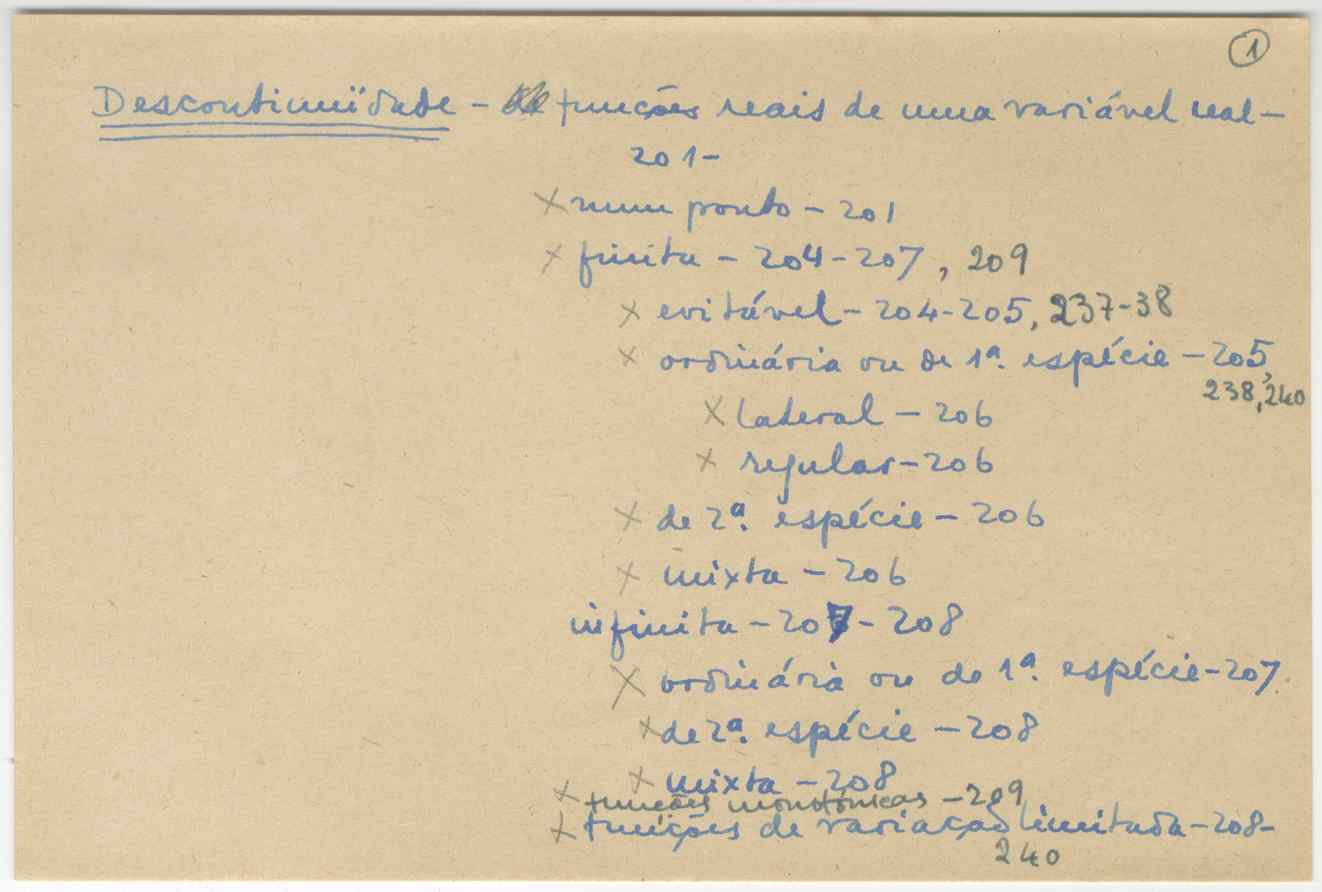 1
Descontinuïdade - funções reais de uma variável real -
201-
× num ponto - 201
× finita - 204-207, 209
× evitável - 204-205, 237-38
× ordinária ou de 1ª. espécie - 205,
238, 240
× lateral - 206
× regular - 206
× de 2ª. espécie - 206
× mixta - 206
infinita - 207-208
× ordinária ou de 1ª. espécie - 207.
× de 2ª. espécie - 208
× mixta - 208
× funções monotónicas - 209
× funções de variação limitada - 208-
240